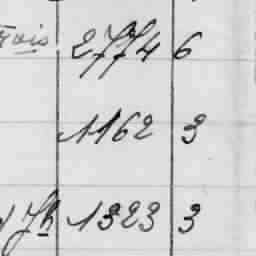 rois 2774 6
1162 3
Jh 1323 3